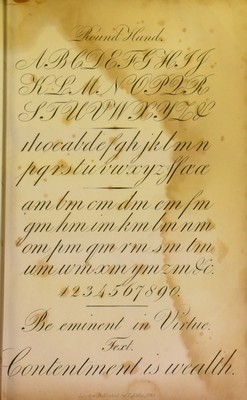 Round Hand.
A B C D E F G H I J
K L M N O P Q R
S T U V W X Y Z &
abcdefghijklmn
pqrstuvwxyz
am bm cm dm em fm
gm hm im km lm mm
om pm qm rm sm tm
um wm xm ym zm &c.
1234567890.
Be eminent in Virtue.
Text.
Contentment is wealth.